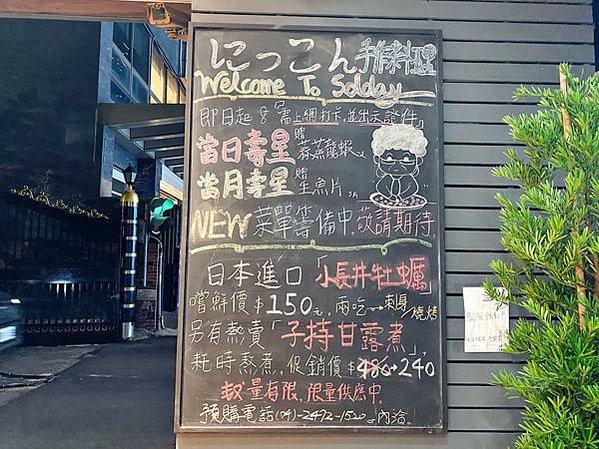 にっこん手作料理
Welcome To Solday
即日起 只需上網打卡,並出示證件
當日壽星 贈 蒜蒸龍蝦
當月壽星 贈 生魚片
NEW菜單籌備中,敬請期待
日本進口「小長井牡蠣」
嚐鮮價$150元,兩吃→刺身/燒烤
另有熱賣「子持甘露煮」,
耗時熬煮,促銷價$480→240
數量有限,限量供應中,
預購電話(04)-2472-1520 or內洽